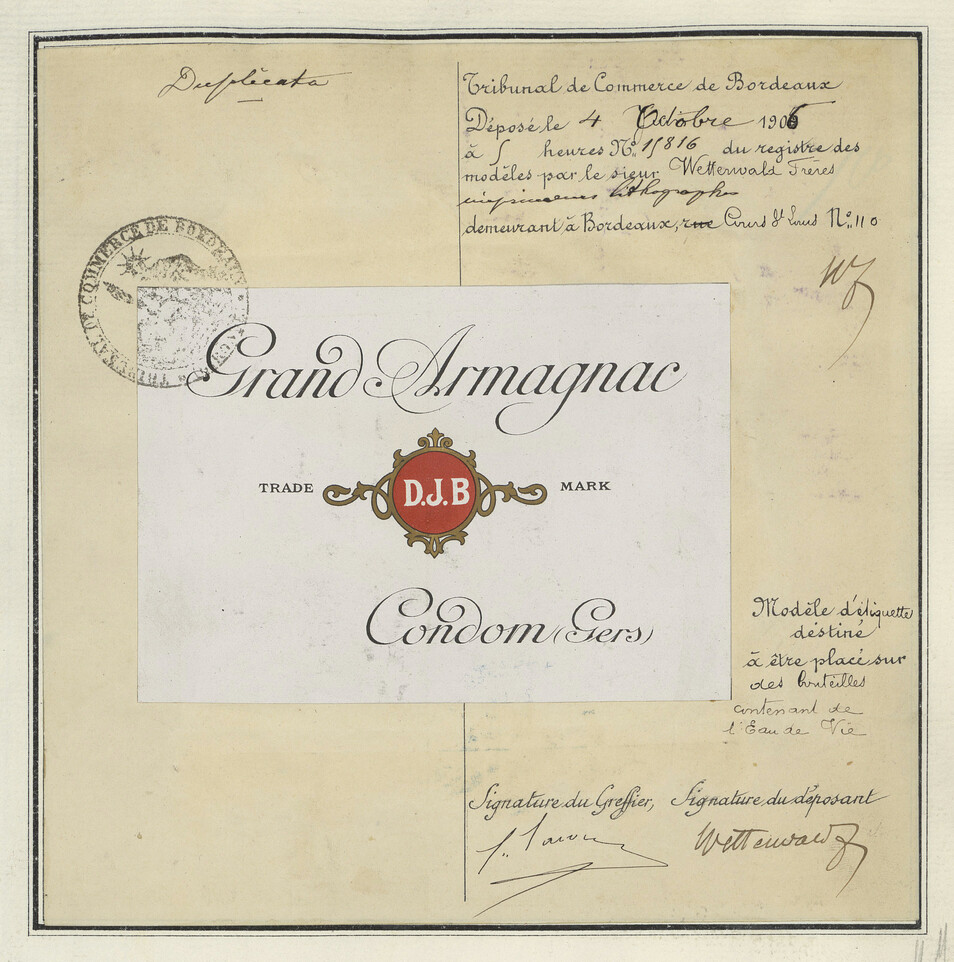 Duplicata
Tribunal de Commerce de Bordeaux
Déposé le 4 Octobre 1906
à 5 heures N° 15816 du registre des
modèles par le sieur Wetterwald Frères
imprimeurs lithographes
demeurant à Bordeaux, rue Cours St Louis N° 110
TRIBUNAL DE COMMERCE DE BORDEAUX
Grand Armagnac
TRADE D.J.B MARK
Condom (Gers)
Modèle d'étiquette
déstiné
à être placé sur
des bouteilles
contenant de
l'Eau de Vie
Signature du Greffier, Signature du déposant
Wetterwald